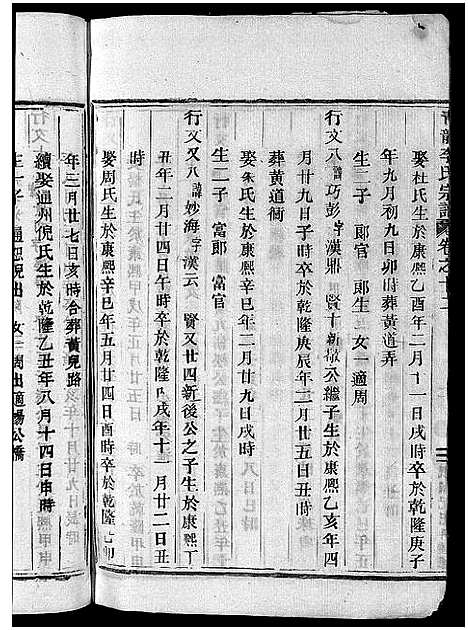 龍李氏宗譜 卷之十二
娶杜氏生於康熙乙酉年二月十一日戌時卒於乾隆庚子
年九月初九日卯時葬黃道弄
生二子 郎官 郎生 女一適周
行文八 諱巧彭 字漢鼎 賢十新檄公繼子生於康熙乙亥年四
月廿九日子時卒於乾隆庚辰年二月廿五日丑時
葬黃道衕
娶朱氏生於康熙辛巳年二月廿九日戌時
生二子 富郎 富官
行文又八 諱妙海 字漢云 賢又廿四新後公之子生於康熙丁
丑年二月廿四日午時卒於乾隆 戌年十二月廿二日丑
時
娶周氏生於康熙辛巳年五月廿四日酉時卒於乾隆己卯
年三月廿七日亥時合葬黃兒路
續娶通州倪氏生於乾隆乙丑年八月十四日申時
生一子 通 倪出 女一周出適楊公橋